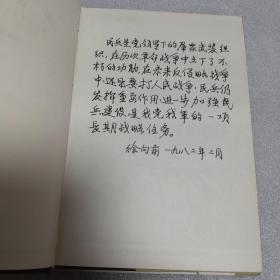 民兵是党领导下的群众武装组
织，在历次革命战争中立下了不
朽的功勋，在未来反侵略战争
中，还是要打人民战争，民兵仍
发挥重要作用，进一步加强民
兵建设，是我党我军的一项
长期战略任务。
徐向前 一九八二年二月